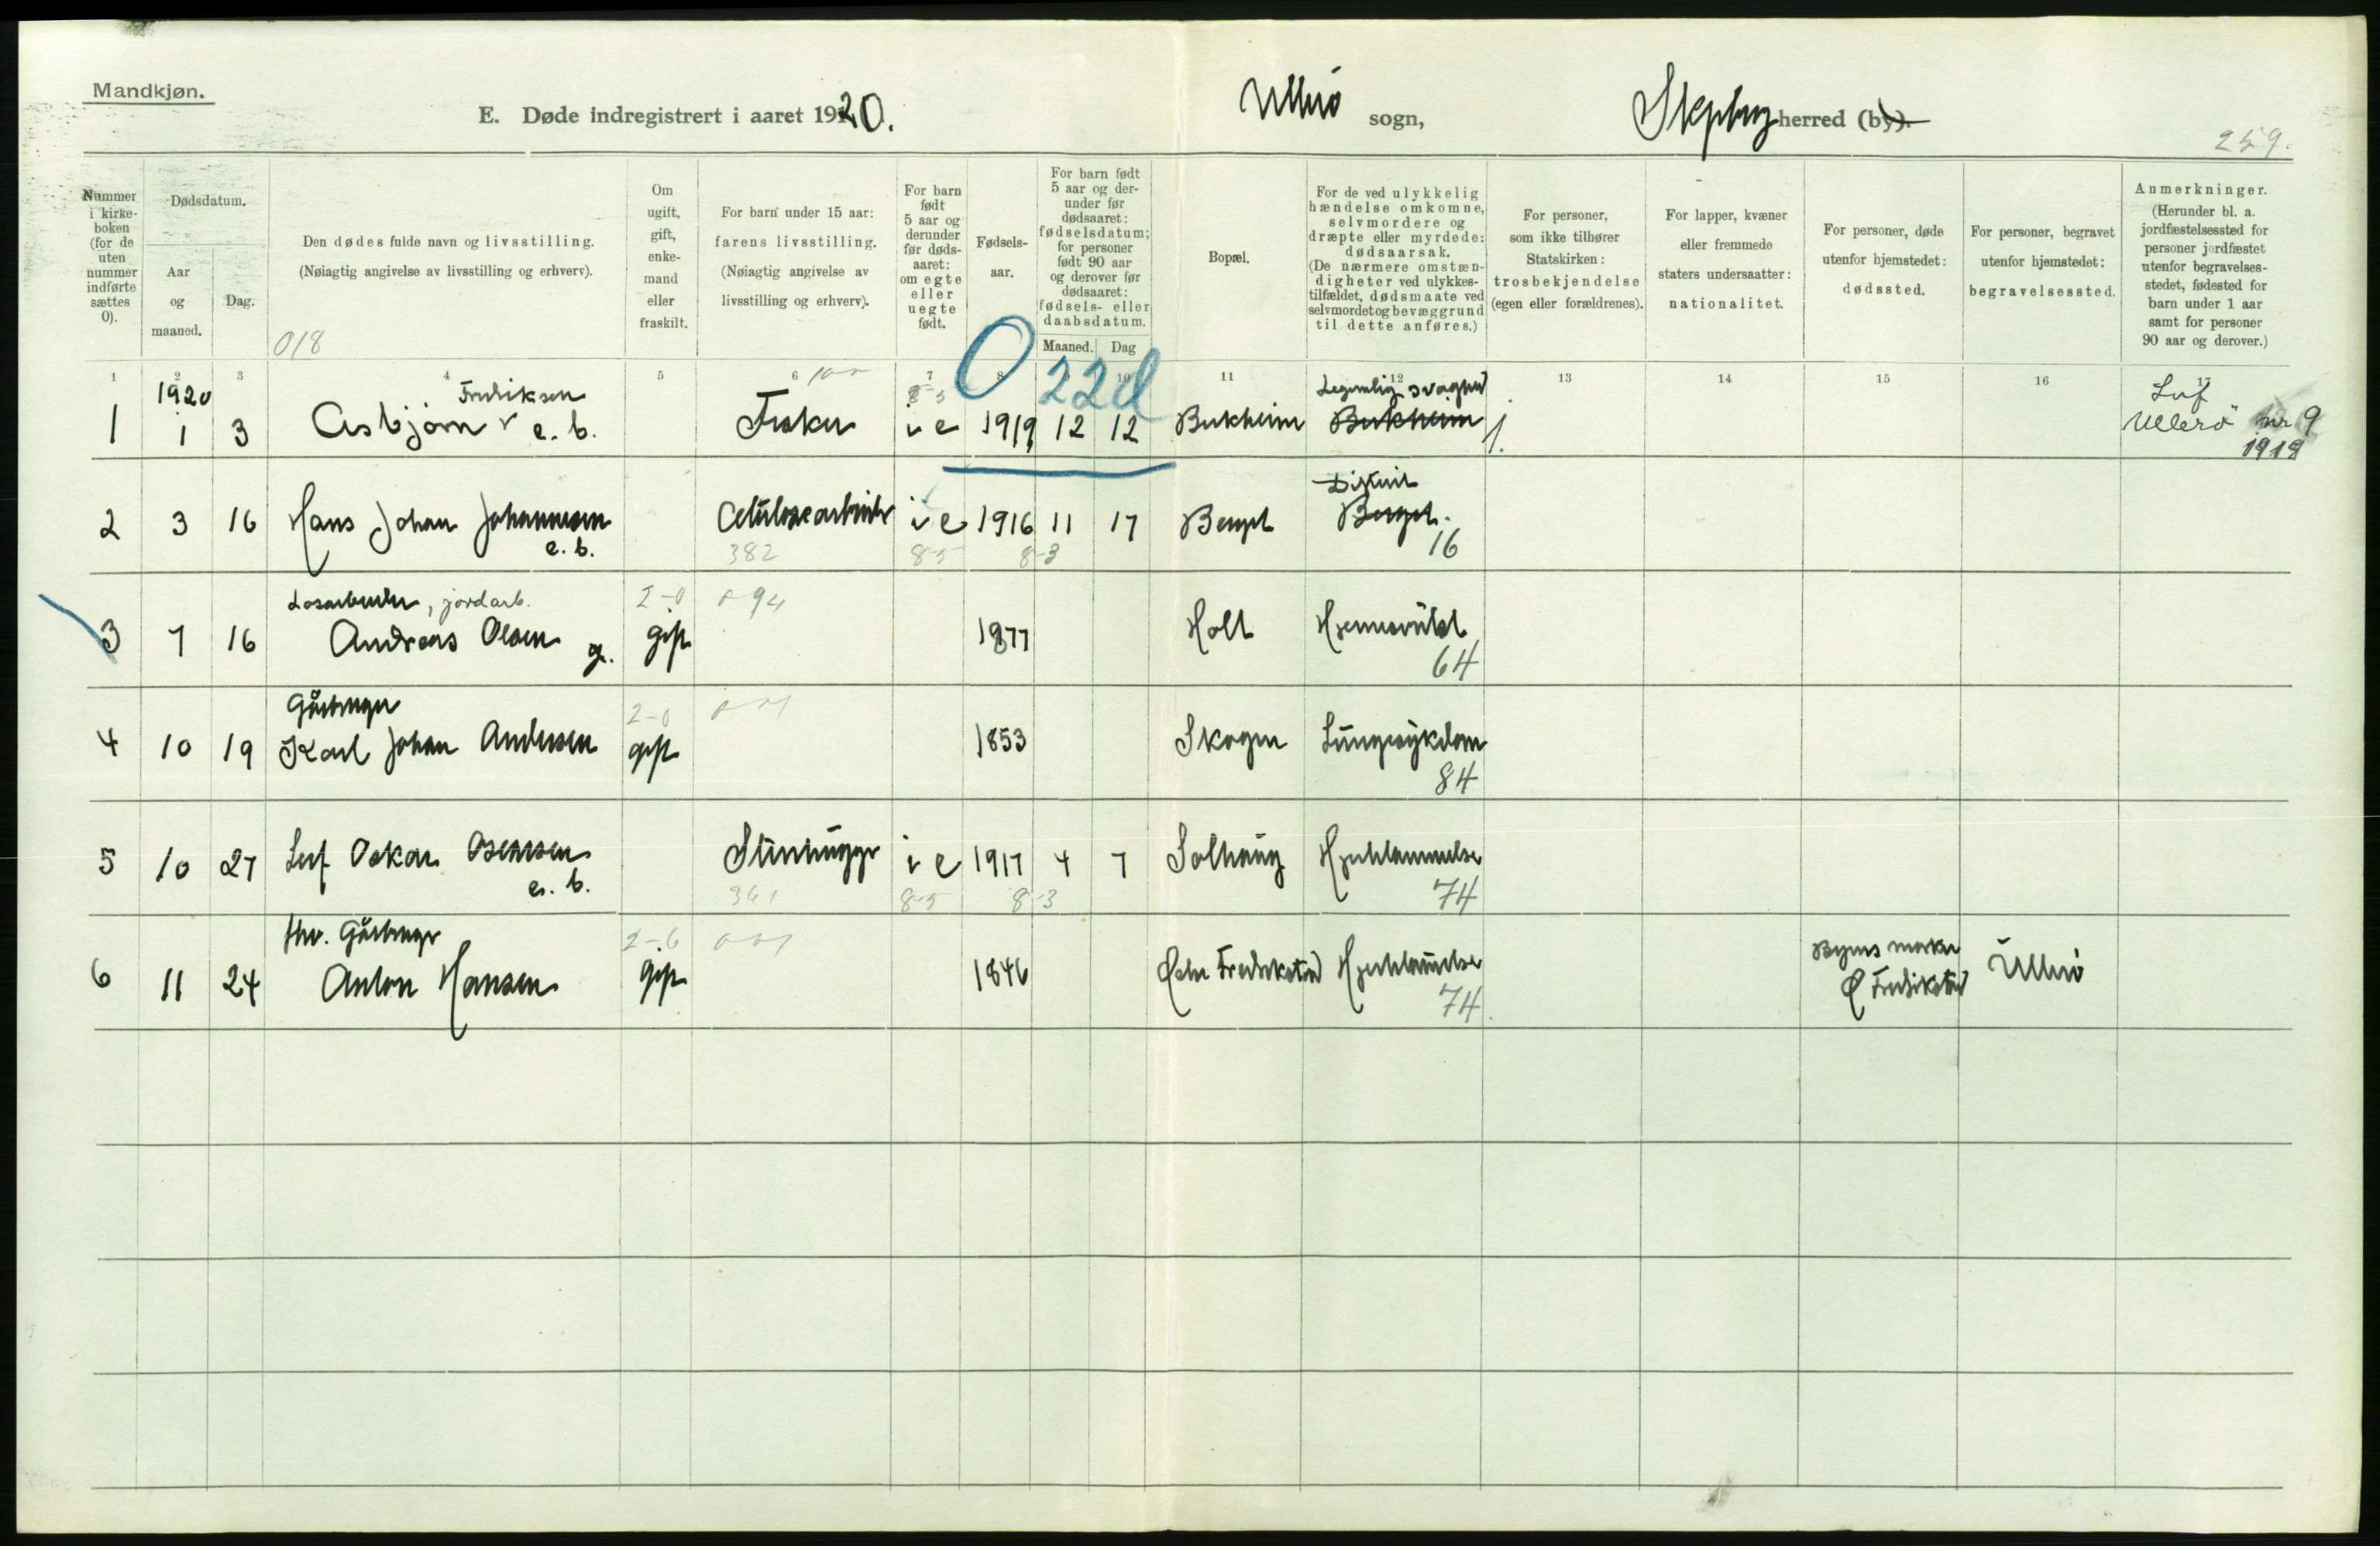 Mandkjøn.
E. Døde indregistrert i aaret 1920.
Ullerö sogn,
Skjeberg herred (by).
259.
Nummer i kirke-boken (for de uten nummer indførte sættes 0).
Dødsdatum.
Aar og maaned.
Dag.
Den dødes fulde navn og livsstilling.
(Nøiagtig angivelse av livsstilling og erhverv).
018
Om ugift, gift, enke-mand eller fraskilt.
For barn under 15 aar: farens livsstilling.
(Nøiagtig angivelse av livsstilling og erhverv).
For barn født 5 aar og derunder før døds-aaret: om egte eller uegte født.
Fødsels-aar.
For barn født 5 aar og der-under før dødsaaret: fødselsdatum; for personer født 90 aar og derover før dødsaaret: fødsels- eller daabsdatum.
Maaned. Dag
Bopæl.
For de ved ulykkelig hændelse omkomne, selvmordere og dræpte eller myrdede: dødsaarsak.
(De nærmere omstæn-digheter ved ulykkes-tilfældet, dødsmaate ved selvmordet og bevæggrund til dette anføres.)
For personer, som ikke tilhører Statskirken: trosbekjendelse (egen eller forældrenes).
For lapper, kvæner eller fremmede staters undersaatter: nationalitet.
For personer, døde utenfor hjemstedet: dødssted.
For personer, begravet utenfor hjemstedet: begravelsessted.
Anmerkninger.
(Herunder bl. a. jordfæstelsessted for personer jordfæstet utenfor begravelses-stedet, fødested for barn under 1 aar samt for personer 90 aar og derover.)
1 2 3 4 5 6 7 8 9 10 11 12 13 14 15 16 17
O 22d
1920 Fredriksen 8-5 Legemlig svaghed
1 1 3 Asbjørn e. b. Fisker i e 1919 12 12 Bukheim Bukheim 1.
Ullerö nr 9
1919
2 3 16 Hans Johan Johannesen e. b. Celulosearbeider i e 1916 11 17 Berget Difterit Berget. 16
382 8-5 8-3
Løsarbeider, jordarb. 2-0 0 94
3 7 16 Andreas Olsen g. gift 1877 Holt Hjernesvülst 64
Gårbruger 2-0
4 10 19 Karl Johan Andersen gift 1853 Skogen Lüngesykdom 84
5 10 27 Leif Oskar e. b. Stenhügger i e 1917 4 7 Solhaüg Hjertelammelse 74
361 8-5 8-3
fhv. Gårbruger 2-6
6 11 24 Anton Hansen gift 1846 Fredrikstad Hjertelammelse 74.
Byens marker Ø Fredrikstad Ullerö